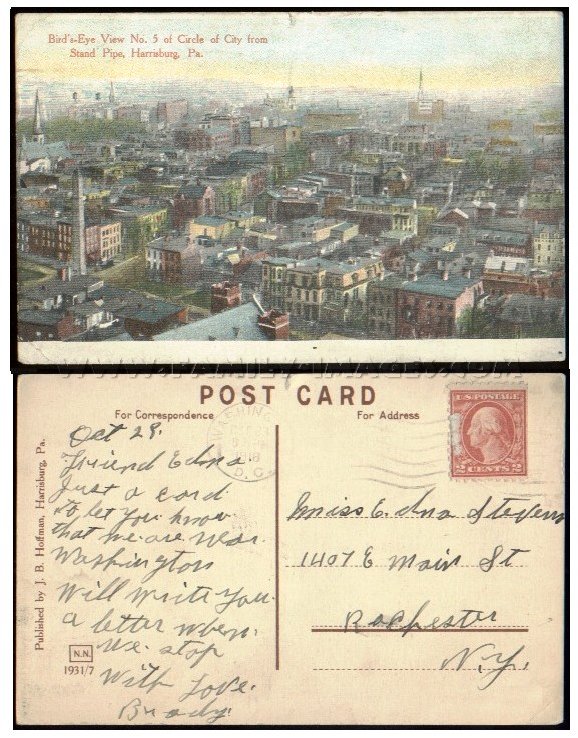 Bird's-Eye View No. 5 of Circle of City from
Stand Pipe, Harrisburg, Pa.
POST CARD
For Correspondence
For Address
U.S. POSTAGE
2 CENTS 2
WASHING
1918
D.C.
Published by J. B. Hoffman, Harrisburg, Pa.
N.N.
1931/7
Oct 29.
Friend Edna
Just a card
to let you know
that we are near
Washington
Will write you
a letter when
we stop
With Love.
Brady.
Miss Edna Stevens
1407 E Main St
Rochester
N.Y.